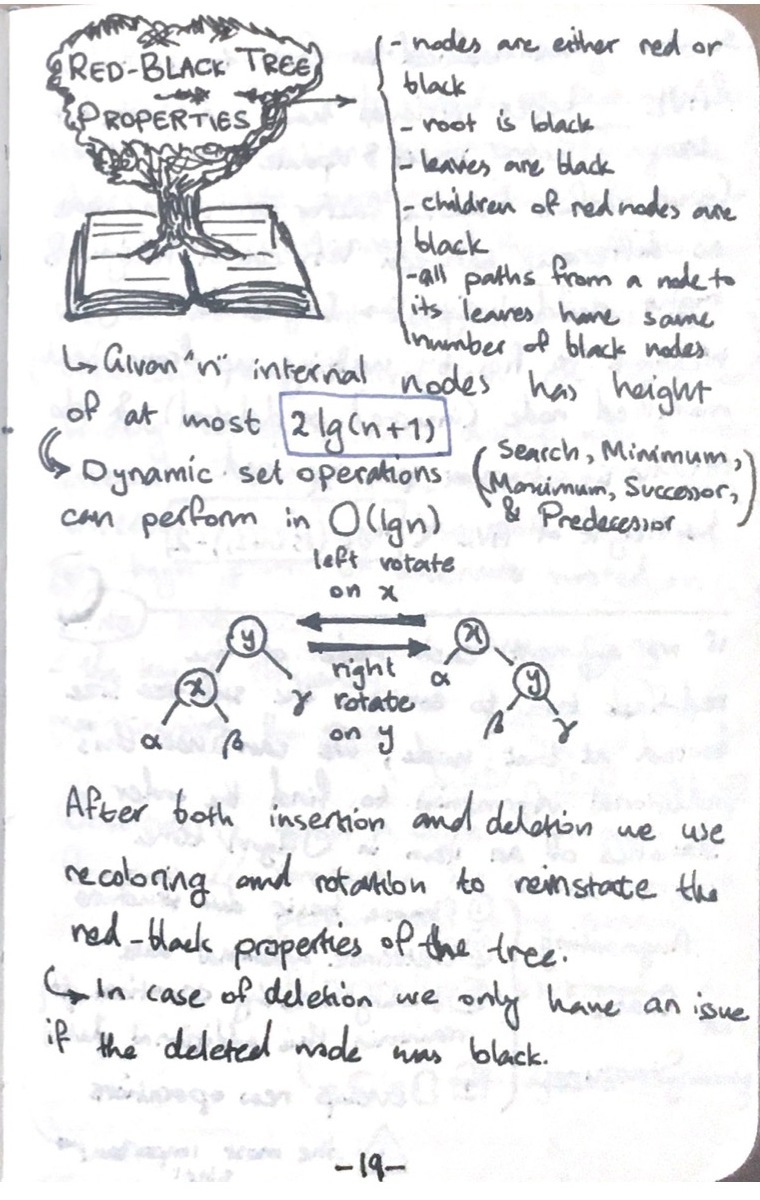 RED-BLACK TREE
PROPERTIES
- nodes are either red or
black
- root is black
- leaves are black
- children of red nodes are
black
- all paths from a node to
its leaves have same
number of black nodes
↳ Given "n" internal nodes has height
of at most 2 lg(n+1)
↳ Dynamic set operations
can perform in O(lgn)
(Search, Minimum,
Maximum, Successor,
& Predecessor)
left rotate
on x
y
x
γ
α
β
right
rotate
on y
x
α
y
β
γ
After both insertion and deletion we use
recoloring and rotation to reinstate the
red-black properties of the tree.
↳ In case of deletion we only have an issue
if the deleted node was black.
-19-